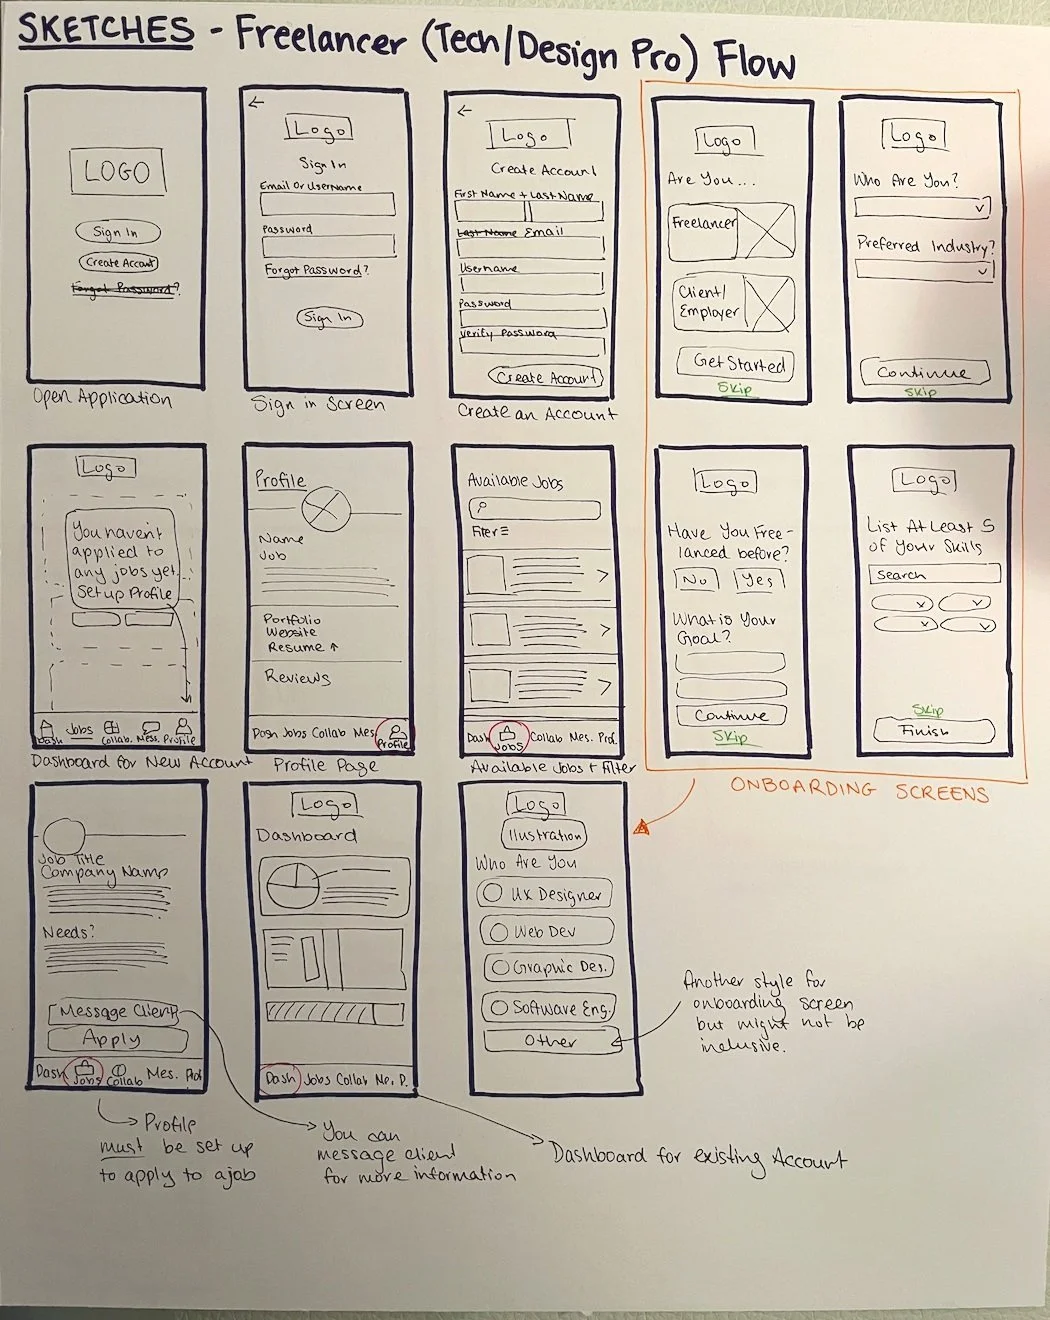 SKETCHES - Freelancer (Tech/Design Pro) Flow
LOGO
Sign In
Create Account
Forgot Password?
Open Application
←
Logo
Sign In
Email Or Username
Password
Forgot Password?
Sign In
Sign in Screen
←
Logo
Create Account
First Name + Last Name
Last Name Email
Username
Password
Verify Password
Create Account
Create an Account
Logo
Are You...
Freelancer
Client/
Employer
Get Started
Skip
Logo
Who Are You?
Preferred Industry?
Continue
Skip
Logo
You haven't
applied to
any jobs yet.
Set up Profile
Dash Jobs Collab. Mess. Profile
Dashboard for New Account
Profile
Name
Job
Portfolio
Website
Resume ↑
Reviews
Dash Jobs Collab Mes. Profile
Profile Page
Available Jobs
Filter
Dash Jobs Collab Mes. Prof.
Available Jobs + Filter
Logo
Have You Free-
lanced before?
No Yes
What is Your
Goal?
Continue
Skip
Logo
List At Least 5
of Your Skills
Search
Skip
Finish
ONBOARDING SCREENS
Job Title
Company Name
Needs?
Message Client
Apply
Dash Jobs Collab Mes. Prof
Logo
Dashboard
Dash Jobs Collab Me. P.
Logo
Illustration
Who Are You
UX Designer
Web Dev
Graphic Des.
Software Eng.
Other
Another style for
onboarding screen
but might not be
inclusive.
Profile
must be set up
to apply to a job
You can
message client
for more information
Dashboard for existing Account